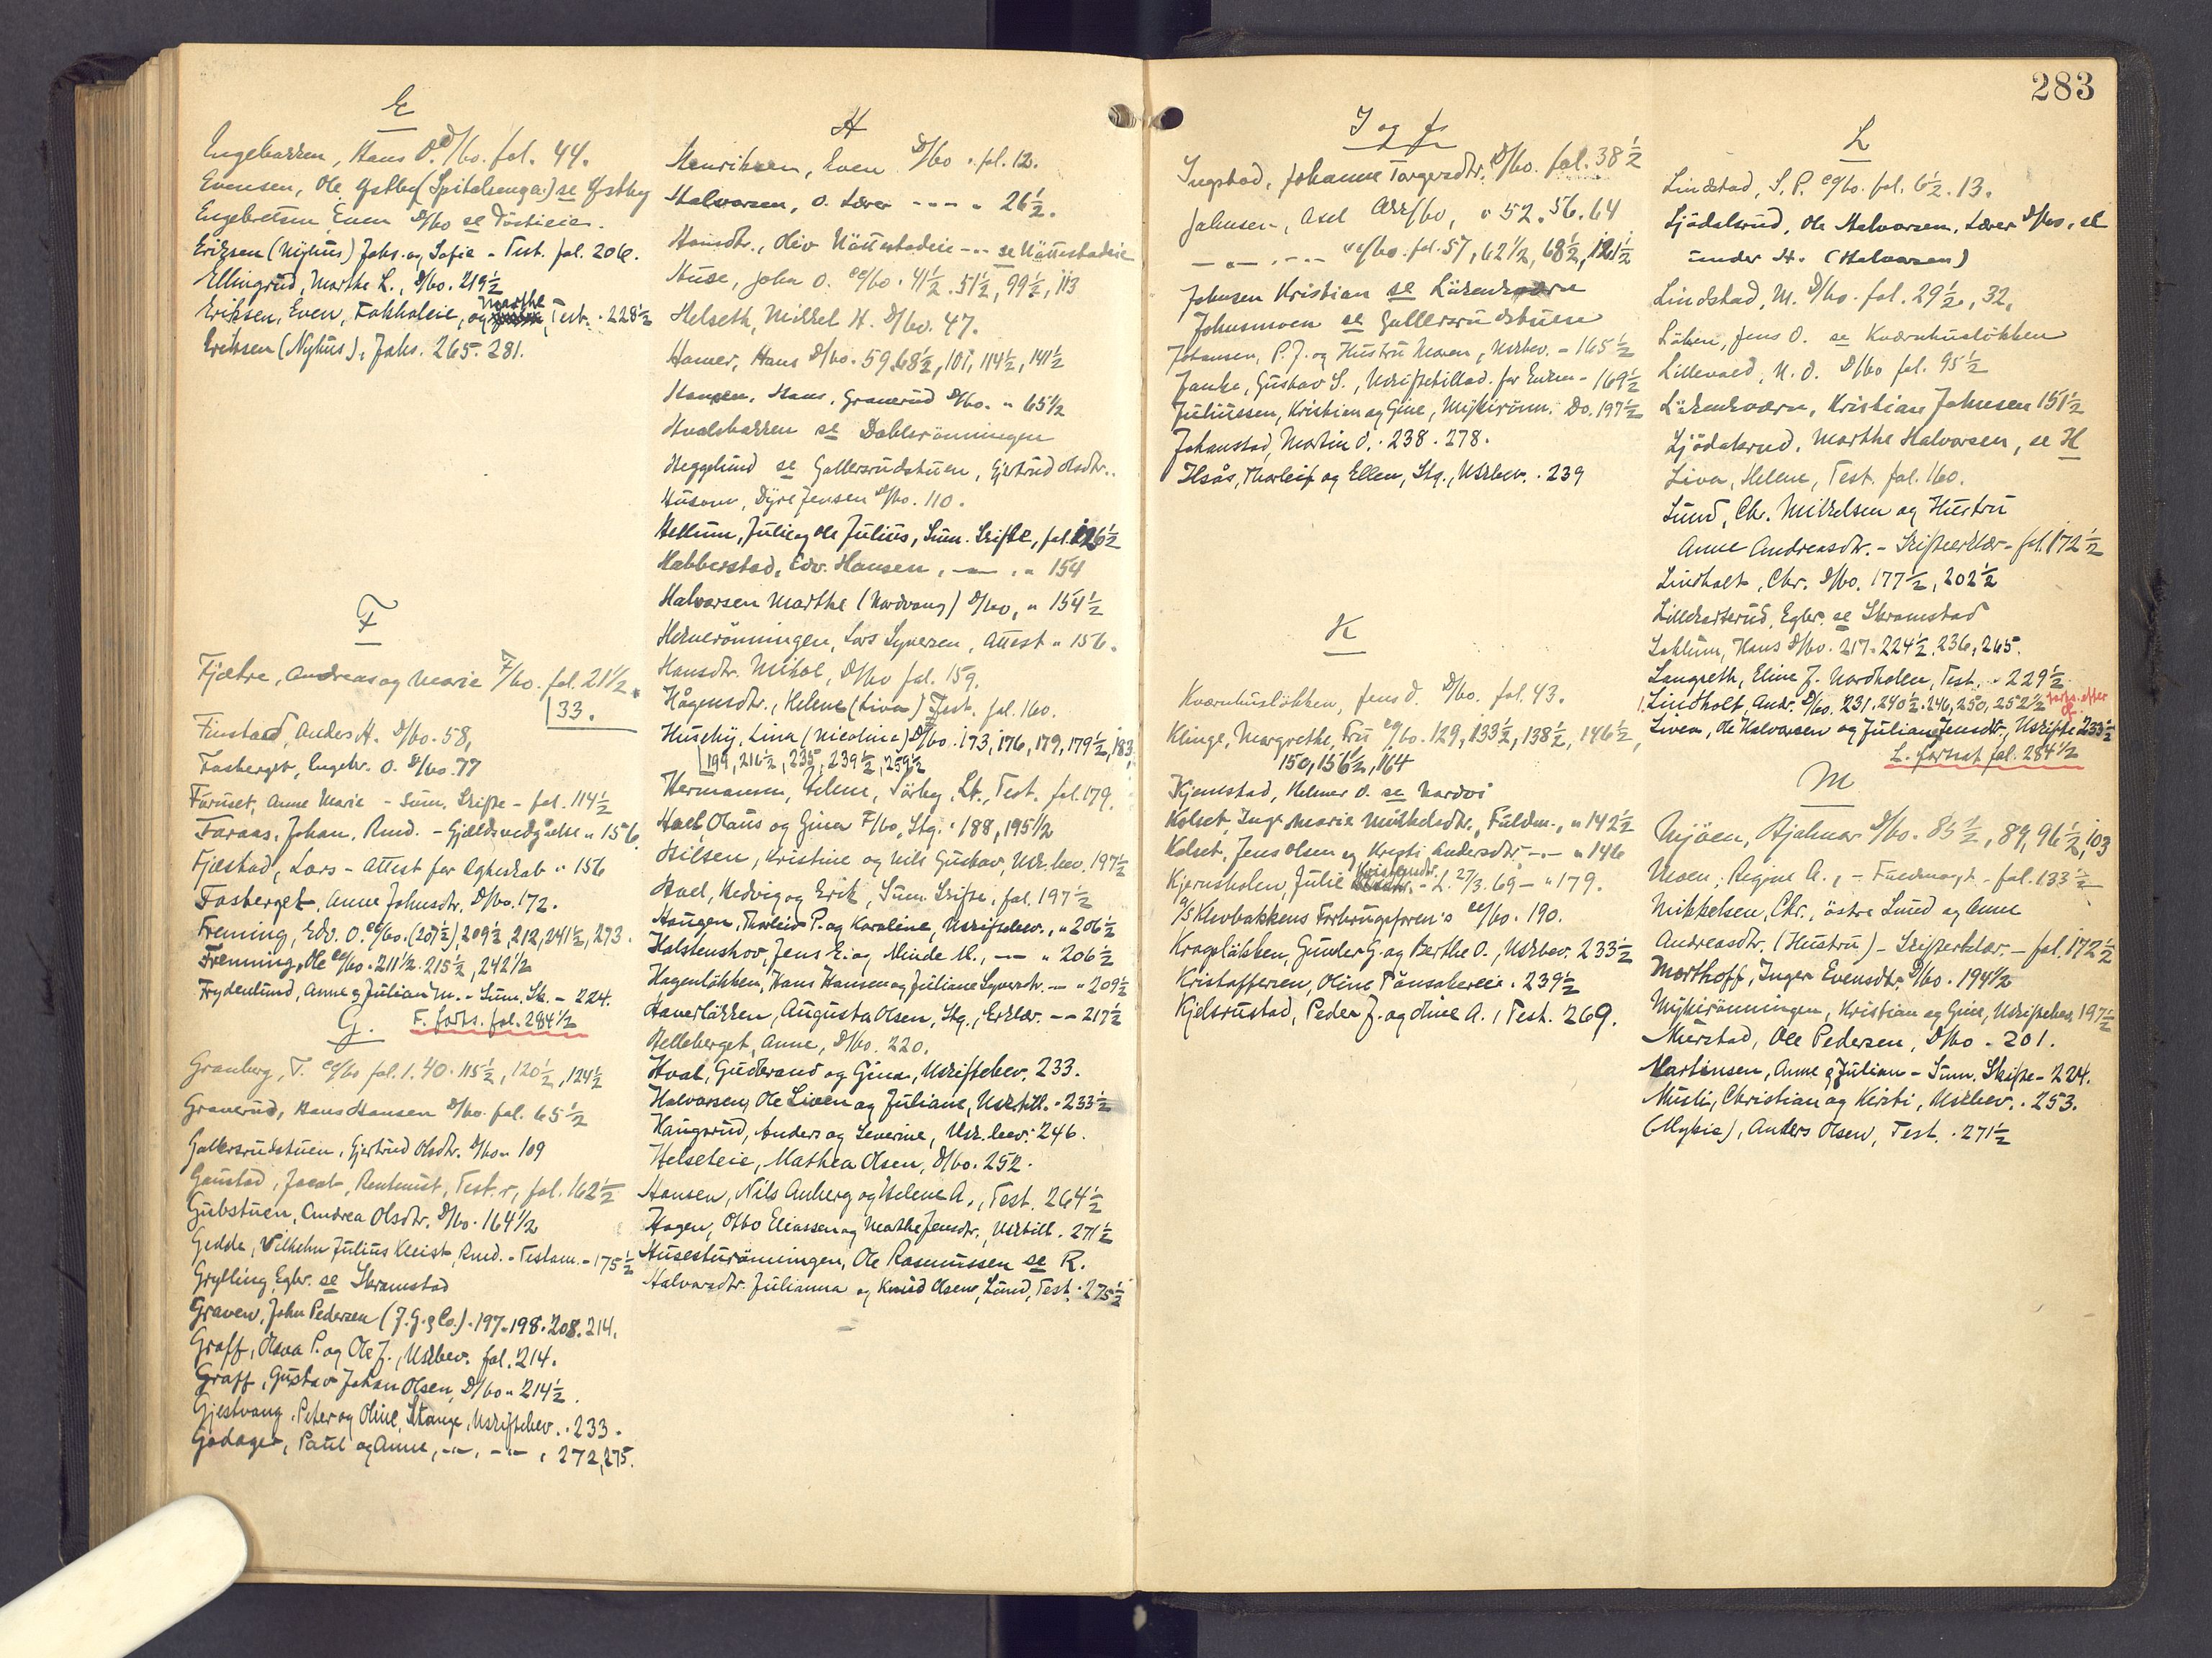 E
Engebakken, Hans O. D/bo. fol. 44.
Evensen, Ole Østby (Spitalsenga) se Østby
Engebretsen, Even D/bo se
Eriksen (Nyhus) Johs. og Sofie - Test. fol. 206.
Ellingrud, Marthe L., D/bo. 219½
Eriksen, Even, og Marthe, Test. . 228½
Eriksen (Nyhus), Johs. 265. 281.
F
Fjætre, Andreas og Marie F/bo. fol. 21½.
33.
Finstad, Anders H. D/bo. 58,
Fosberget, Engebr. O. D/bo. 77
Furuset, Anne Marie - Sum. Skifte - fol. 114½
Faraas, Johan, Rmd. - Gjældsvedgåelse " 156
Fjæstad, Lars - Attest for Egteskab " 156
Fosberget, Anne Johnsdtr. D/bo. 172.
Frenning, Edv. O. eg/bo. (207½), 209½, 212, 241½, 273.
Frenning, Ole eg/bo. 211½. 215½, 242½
Frydenlund, Anne og Julian M. - Sum. Sk. - 224.
F. forts. fol. 284½
G.
Granberg, T. eg/bo fol. 1. 40. 115½, 120½, 124½
Graverud, Hans Hansen D/bo. fol. 65½
Gallersrudstuen, Gjertrud Olsdtr. D/bo " 109
Gaustad, Jacob, Rentenist, Test. r, fol. 162½
Gubstuen, Andrea Olsdtr. D/bo. 164½
Gedde, Vilhelm Julius Kleist, Rmd. - Testam. - 175½
Grylling, Egbr. se Skramstad
Graven, John Pedersen (J. G. & Co.) . 197. 198. 208. 214.
Graff, Olava P. og Ole J., Uskbev. fol. 214.
Graff, Gustav Johan Olsen, D/bo " 214½.
Gjestvang, Peter og Oline, Stange, Uskiftebev. . 233.
Godager, Paul og Anne, -"-, -"- , 272, 275.
H
Henriksen, Even D/bo . fol. 12.
Halvorsen, O. Lærer - - - " 26½.
Hansdtr., Oliv Nöttestadeie - - - se Nöttestadeie
Huse, John O. eg/bo. 41½. 51½, 99½, 113
Helseth, Mikkel H. D/bo. 47.
Hamer, Hans D/bo. 59, 68½, 101, 114½, 141½
Hansen, Hans, Graverud D/bo. " 65½
Hvalsbakken se Dablerönningen
Heggelund se Gallersrudstuen, Gjertrud Olsdtr..
Husom, Dyre Jensen D/bo. 110.
Hellum, Julie og Ole Julius, Sum. Skifte, fol. 126½
Habberstad, Edv. Hansen, -"- , " 154
Halvorsen Marthe (Nordvang) D/bo, " 154½
Heknerönningen, Lars Syversen, Attest " 156.
Hansdtr. Mikal, D/bo fol. 159.
Hågensdtr., Helene (Livø) Test. fol. 160.
Huseby, Lina (Nicoline) D/bo . 173, 176, 179, 179½, 183,
199, 216½, 235, 239½, 259½
Hermansen, Helene, Törby, Lt., Test. fol. 179.
Hoel, Olaus og Gina F/bo, Stg. . 188, 195½
Hilsen, Kristine og Nils Gustav, Usk. bev. 197½
Hoel, Hedvig og Erik, Sum. Skifte, fol. 197½
Haugen, Thorleid P. og Karoline, Uskiftebev., " 206½
Holstenshov, Jens E. og Minde M., -"- " 206½
Hagenlökken, Hans Hansen og Juliane Syverstr. -"- " 209½
Haverlökken, Augusta Olsen, Stg., Erklær. - - 217½
Helleberget, Anne, D/bo. 220.
Hval, Gudbrand og Gina, Uskiftebev. 233.
Halvorsen, Ole Liven og Juliane, Usk.till. . 233½
Haugsrud, Anders og Severine, Usk. bev. 246.
Helseteie, Mathea Olsen, D/bo. 252.
Hansen, Nils Anberg og Helene A., Test. 264½
Hagen, Otto Eliassen og Marthe Jensdtr., Usktill. . 271½
Husesturönningen, Ole Rasmussen se R.
Halvorsdtr. Julianna og Knud Olsen, Lund, Test. . 275½
283
I og J
Ingstad, Johanne Torgersdtr. D/bo. fol. 38½
Johnsen, Axel Akk/bo, " 52. 56. 64
-"- . - - " eg/bo. fol. 57, 62½, 68½, 121½
Johnsen Kristian se Lökenkværn
Johnsmoen se Gallersrudstuen
Johansen, P. J. og Hustru Maren, Uskbev. - 165½
Janke, Gustav S., Uskiftetillad. for Enken - 169½
Juliussen, Kristian og Gine, Mykirönn. Do. 197½
Johanstad, Martin O. . 238 . 278.
Ilsås, Thorleif og Ellen, Stg., Uskbev. . 239
K
Kværnhuslökken, Jens O. D/bo. fol. 43.
Klinge, Margrethe, Fru eg/bo. 129, 133½, 138½, 146½,
150, 156½, 164
Kjemstad, Helmer O. se Nordvi
Kolset, Inge Marie Mikkelsdtr., Fuldm., " 142½
Kolset, Jens Olsen og Kristi Andersdtr -"- " 146
Kjernsholen, Julie Kristensdtr. - L. 27/3. 69 - " 179.
A/S Klevbakkens Forbrugsforen's eg/bo. 190.
Kragelökken, Gunder G. og Berthe O., Uskbev. 233½
Kristoffersen, Oline Tönsakereie . 239½
Kjelsrustad, Peder J. og Oline A., Test. 269.
L
Lindstad, S. P. eg/bo. fol. 6½. 13.
Ljödalsrud, Ole Halvorsen, Lærer D/bo, se
under H. (Halvorsen)
Lindstad, M. D/bo. fol. 29½, 32,
Löken, Jens O. se Kværnhuslökken
Lillevold, N. O. D/bo fol. 95½
Lökenkværn, Kristian Johnsen 151½
Ljödalsrud, Marthe Halvorsen, se H
Livø, Helene, Test. fol. 160.
Lund, Chr. Mikkelsen og Hustru
Anne Andreasdtr. - Skifteerklær - fol. 172½
Lindholt, Chr. D/bo. 177½, 202½
Lillekarterud, Egbr. se Skramstad
Laklum, Hans D/bo. 217. 224½, 236, 265.
Langreth, Eline J. Nordholen, Test. . 229½
Lindholt, Andr. D/bo. 231. 240½. 246, 250, 252½
Liven, Ole Halvorsen og Juliane Jensdtr., Uskifte 233½
L. fortsat fol. 284½
M
Mjöen, Hjalmar D/bo. 85½, 89, 96½, 103
Moen, Regine A., - Fuldmagt - fol. 133½
Mikkelsen, Chr., östre Lund og Anne
Andreasdtr. (Hustru) - Skifteerklær. - fol. 172½
Morthoff, Inger Evensdtr. D/bo. 194½
Mykirönningen, Kristian og Gine, Uskiftebev. 197½
Murstad, Ole Pedersen, D/bo . 201.
Martinsen, Anne og Julian - Sum. Skifte - 224.
Musli, Christian og Kirsti, Uskbev. . 253.
(Mykis), Anders Olsen, Test. . 271½